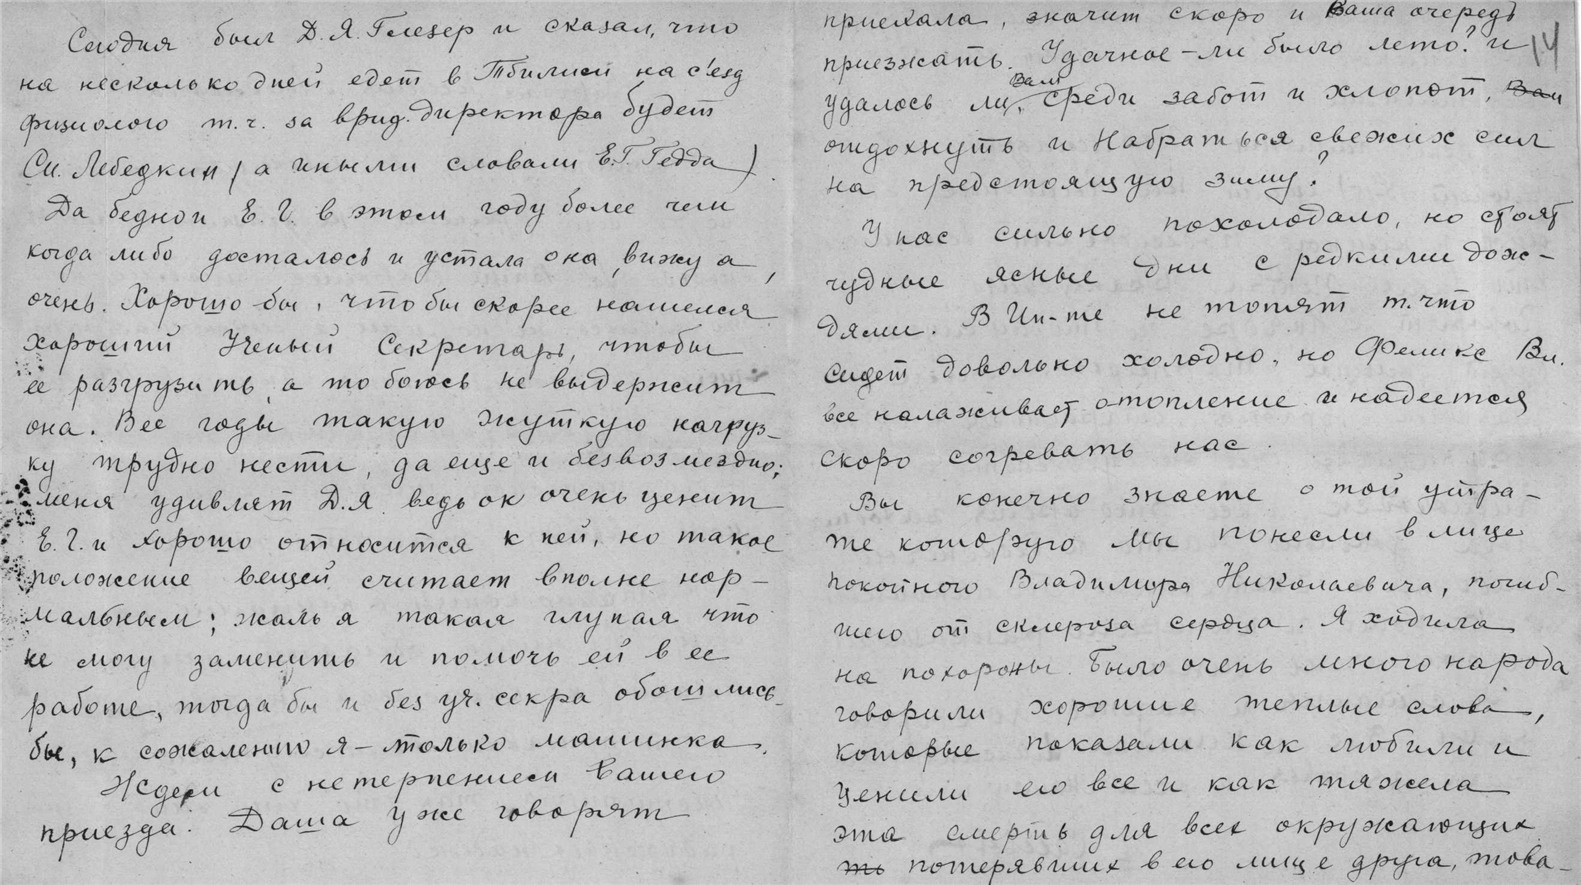 Сегодня был Д.Я. Глезер и сказал, что
на несколько дней едет в Тбилиси на с'езд
физиолого т.ч. за врид. директора будет
См. Лебедкин (а иными словами Е.Г. Гедда).
Да бедной Е.Г. в этом году более чем
когда либо досталось и устала она, вижу я,
очень. Хорошо-бы, чтобы скорее нашелся
хороший Ученый Секретарь, чтобы
ее разгрузить, а то боюсь не выдержит
она. Все годы такую жуткую нагруз-
ку трудно нести, да еще и безвозмездно;
меня удивлят Д.Я. ведь он очень ценит
Е.Г. и хорошо относится к ней, но такое
положение вещей считает вполне нор-
мальным; жаль я такая глупая что
не могу заменить и помочь ей в ее
работе, тогда бы и без уч. секра обошлись-
бы, к сожалению я – только машинка.
Ждем с нетерпением Вашего
приезда. Даша уже говорят
приехала, значит скоро и Ваша очередь 14
приезжать. Удачное-ли было лето? и
удалось ли, Вам среди забот и хлопот, Вам
отдохнуть и набраться свежих сил
на предстоящую зиму?
У нас сильно похолодало, но стоят
чудные ясные дни с редкими дож-
дями. В Ин-те не топят т.что
сидет довольно холодно, но Феликс Вл.
все налаживает отопление и надеется
скоро согревать нас.
Вы конечно знаете о той утра-
те которую мы понесли в лице
покойного Владимира Николаевича, погиб-
шего от склероза сердца. Я ходила
на похороны. Было очень много народа
говорили хорошие теплые слова,
которые показали как любили и
ценили его все и как тяжела
эта смерть для всех окружающих
ть потерявших в его лице друга, това-